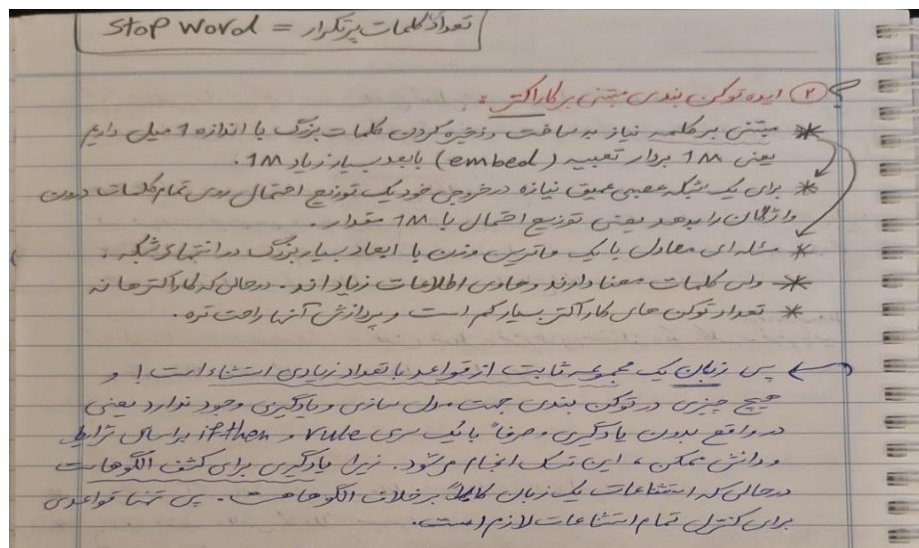 تعداد کلمات پرتکرار = Stop Word
۲) ایده توکن بندی مبتنی بر کاراکتر :
* مبتنی بر کلمه نیاز به ساخت و ذخیره کردن کلمات بزرگ با اندازه 1 میل داریم
یعنی 1M بردار تعبیه (embed) با بعد بسیار زیاد 1M.
* برای یک شبکه عصبی عمیق نیازه در خروجی خود یک توزیع احتمال روی تمام کلمات درون
واژگان را بدهد یعنی توزیع احتمال با 1M مقدار.
* مسئله ای معادل با یک ماتریس وزن با ابعاد بسیار بزرگ در انتهای شبکه.
* ولی کلمات معنا دارند و حاوی اطلاعات زیاد اند. درحالی که کاراکترها نه
* تعداد توکن های کاراکتر بسیار کم است و پردازش آنها راحت تره.
پس زبان یک مجموعه ثابت از قواعد با تعداد زیادی استثناء است! و
هیچ چیزی در توکن بندی جهت مدل سازی و یادگیری وجود ندارد یعنی
در واقع بدون یادگیری و صرفاً با یک سری rule و if then براساس شرایط
و دانش ممکن، این تسک انجام میشود. زیرا یادگیری برای کشف الگوهاست
درحالی که استثناعات یک زبان کاملاً برخلاف الگوهاست. پس تنها قواعدی
برای کنترل تمام استثناعات لازم است.